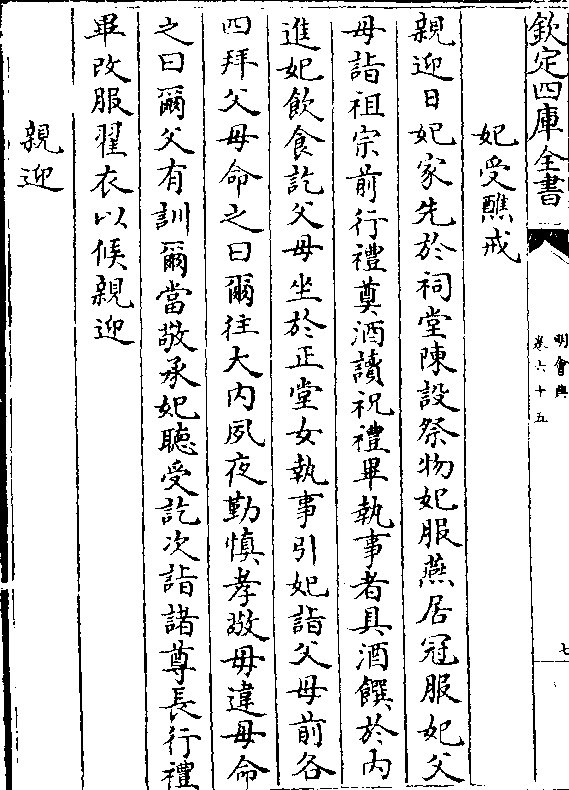 欽定四庫全書
明會典
卷六十五
七
妃受醮戒
親迎日妃家先於祠堂陳設祭物妃服燕居冠服妃父
母詣祖宗前行禮奠酒讀祝禮畢執事者具酒饌於內
進妃飲食訖父母坐於正堂女執事引妃詣父母前各
四拜父母命之曰爾往大內夙夜勤慎孝敬毋違母命
之曰爾父有訓爾當敬承妃聽受訖次詣諸尊長行禮
畢改服翟衣以候親迎
親迎